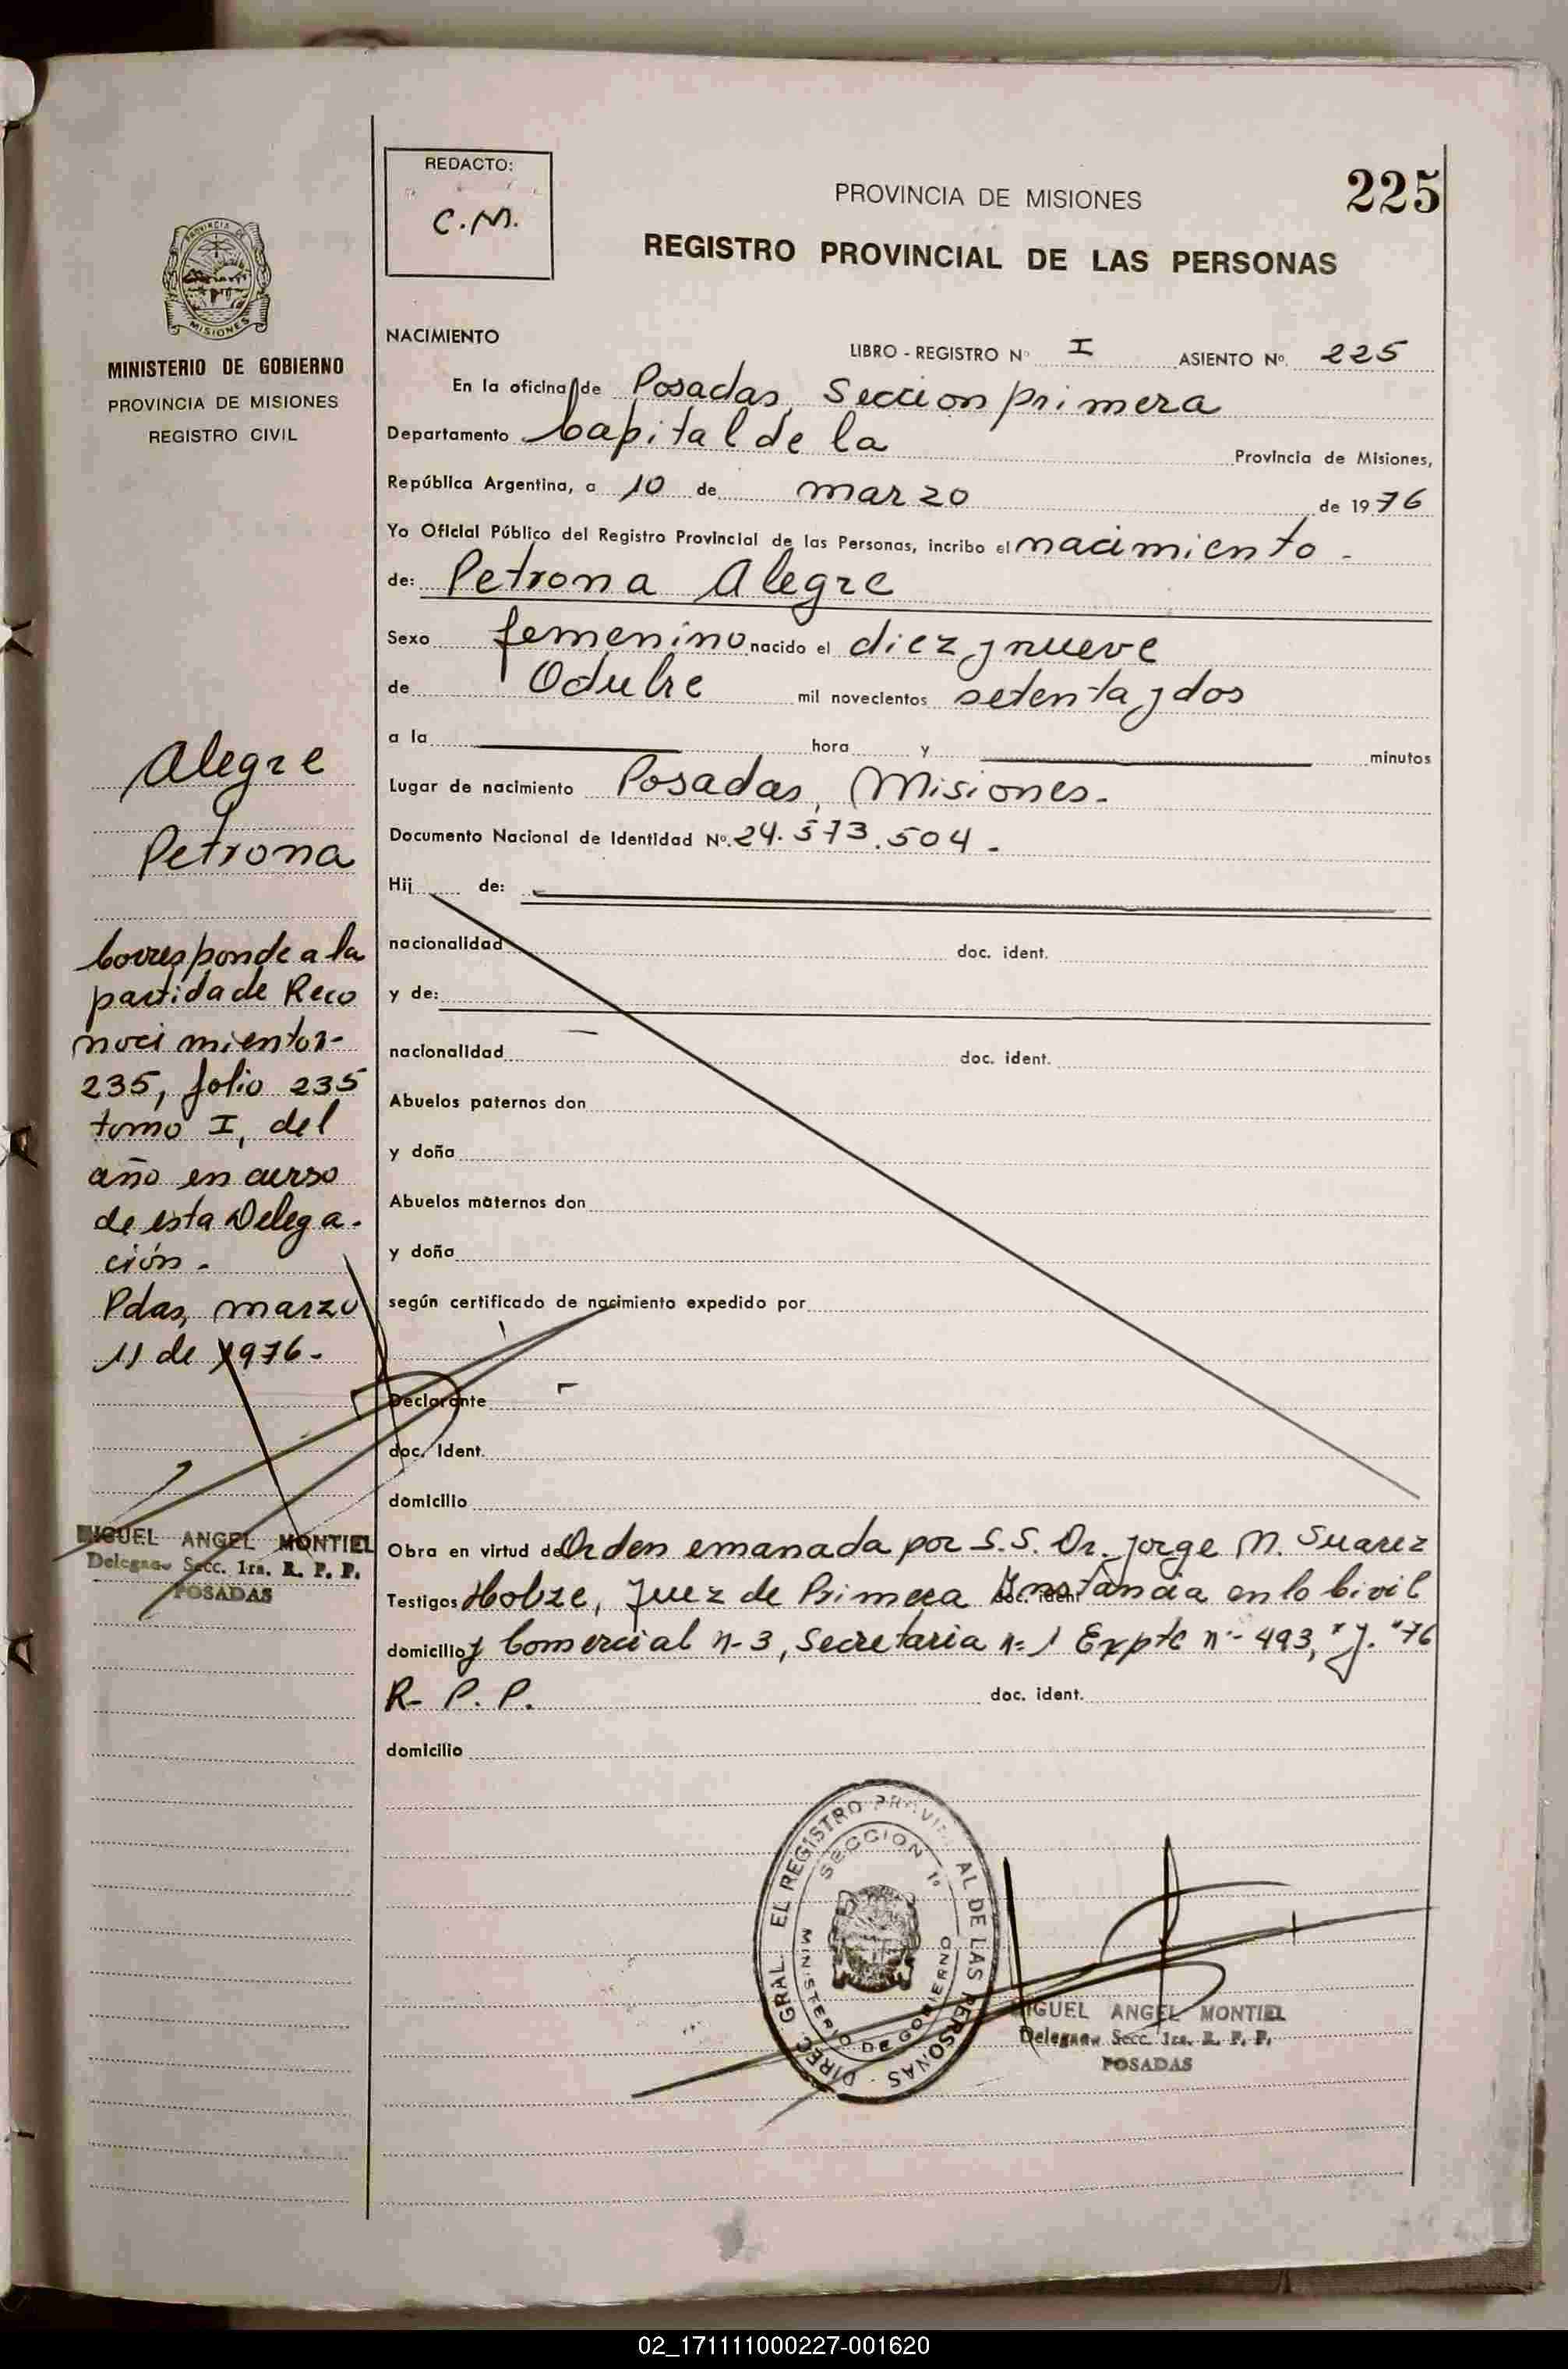 225
REDACTO:
C.M.
PROVINCIA DE MISIONES
REGISTRO PROVINCIAL DE LAS PERSONAS
PROVINCIA DE
MISIONES
MINISTERIO DE GOBIERNO
PROVINCIA DE MISIONES
REGISTRO CIVIL
Alegre
Petrona
Corresponde a la
partida de Reco
nocimientos-
235, folio 235
tomo I, del
año en curso
de esta Delega-
ción.-
Pdas, marzo
11 de 1976.-
MIGUEL ANGEL MONTIEL
Secc. 1ra. R. P. P.
POSADAS
NACIMIENTO
LIBRO - REGISTRO Nº I ASIENTO Nº. 225
En la oficina de Posadas, Seccion primera
Departamento Capital de la Provincia de Misiones,
República Argentina, a 10 de marzo de 1976
Yo Oficial Público del Registro Provincial de las Personas, incribo el nacimiento -
de: Petrona Alegre
Sexo femenino nacido el diez y nueve
de Octubre mil novecientos setenta y dos
a la hora y minutos
Lugar de nacimiento Posadas, Misiones.-
Documento Nacional de Identidad Nº. 24.573.504.-
Hij de:
nacionalidad doc. ident.
y de:
nacionalidad doc. ident.
Abuelos paternos don
y doña
Abuelos maternos don
y doña
según certificado de nacimiento expedido por
Declarante
doc. Ident.
domicilio
Obra en virtud de Orden emanada por S.S. Dr. Jorge M. Suarez
Testigos Juez de Primera doc. ident Instancia en lo Civil
domicilio y Comercial n-3, Secretaria n=1 Expte nº- 493, "J." 76
R- P. P. doc. ident.
domicilio
DIREC. GRAL. EL REGISTRO PROVINCIAL DE LAS PERSONAS -
SECCION 1º
MINISTERIO DE GOBIERNO
MIGUEL ANGEL MONTIEL
Secc. 1ra. R. P. P.
POSADAS
02_171111000227-001620